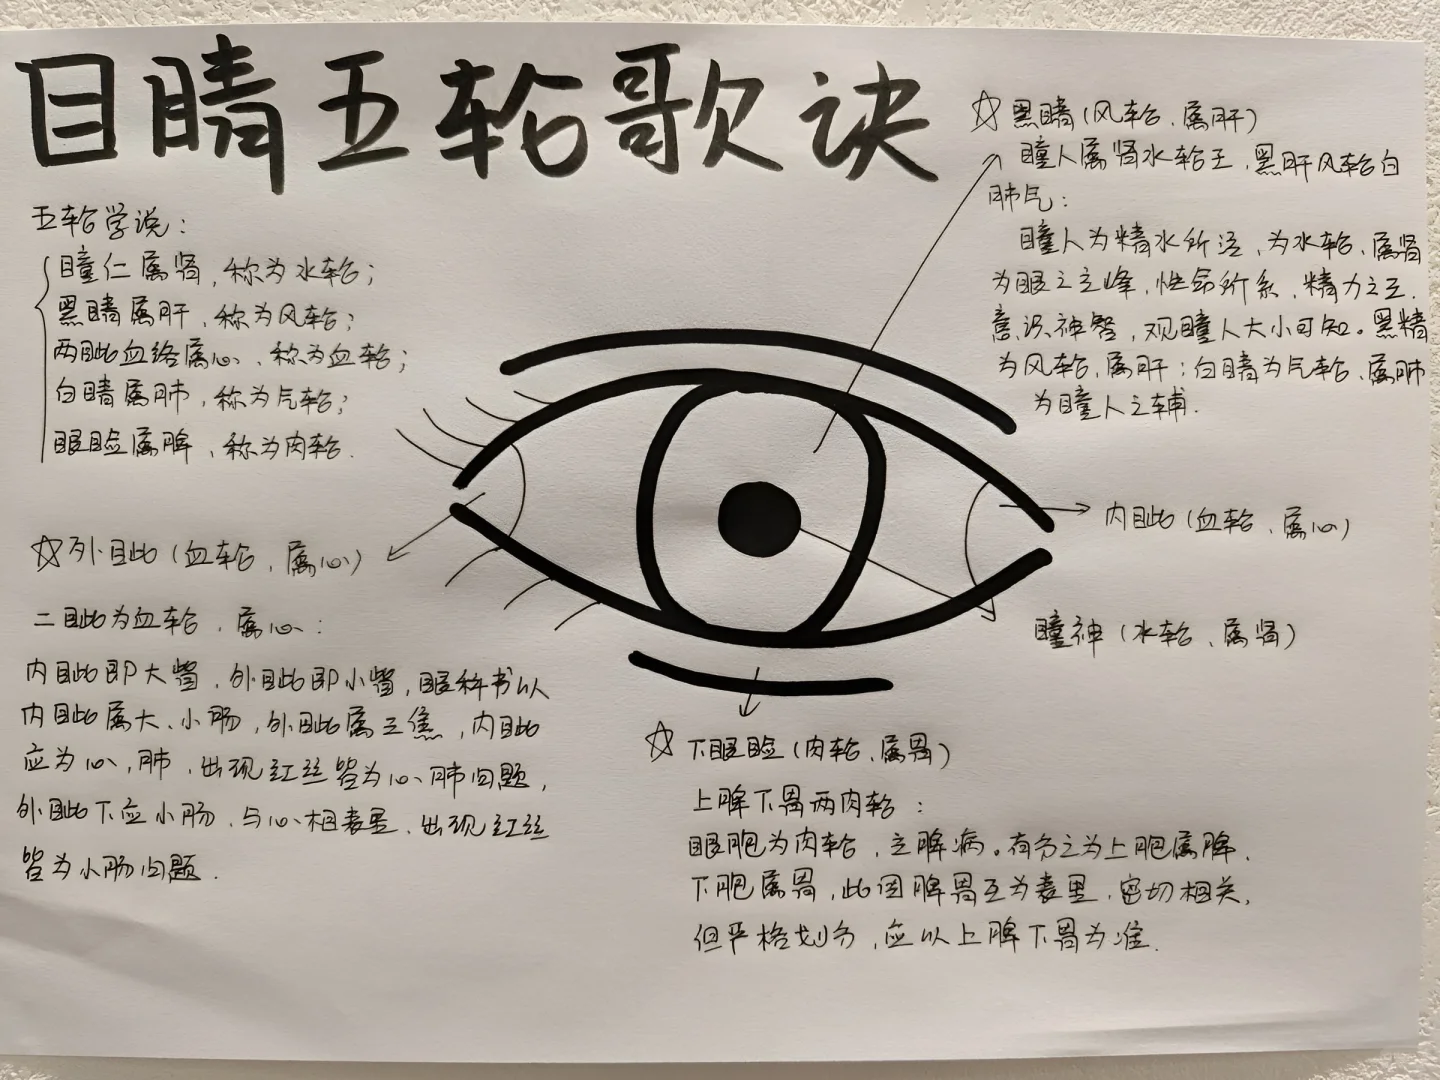 目睛五轮歌诀
五轮学说：
瞳仁属肾，称为水轮；
黑睛属肝，称为风轮；
两眦血络属心、称为血轮；
白睛属肺，称为气轮；
眼睑属脾，称为肉轮.
☆外眦（血轮、属心）
二眦为血轮，属心：
内眦即大眥，外眦即小眥，眼科书以
内眦属大、小肠，外眦属三焦，内眦
应为心，肺，出现红丝皆为心肺问题，
外眦下应小肠、与心相表里、出现红丝
皆为小肠问题.
☆黑睛（风轮、属肝）
瞳人属肾水轮王，黑肝风轮白
肺气：
瞳人为精水所注，为水轮、属肾
为眼之主峰，性命所系，精力之王.
意识神智，观瞳人大小可知。黑精
为风轮、属肝；白睛为气轮、属肺
为瞳人之辅.
内眦（血轮、属心）
瞳神（水轮、属肾）
☆下眼睑（肉轮、属胃）
上脾下胃两肉轮：
眼胞为肉轮，主脾病。有分之为上胞属脾、
下胞属胃，此因脾胃互为表里，密切相关，
但严格划分，应以上脾下胃为准.